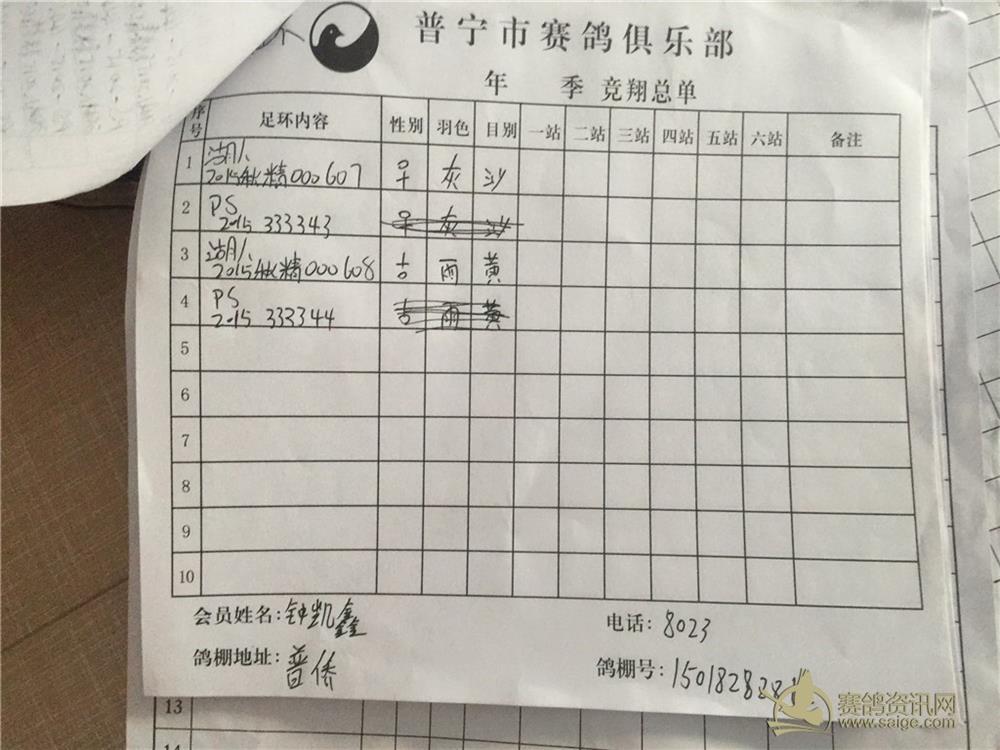 普宁市赛鸽俱乐部
年 季 竞翔总单
序号 足环内容 性别 羽色 目别 一站 二站 三站 四站 五站 六站 备注
1 2015 精000607 灰 沙
2 PS 2015 333343 灰 沙
3 2015 精000608 雨 黄
4 PS 2015 333344 雨 黄
5
6
7
8
9
10
会员姓名:钟凯鑫 电话:8023
鸽棚地址:普侨 鸽棚号:150182828
13
14
赛鸽资讯网
www.saige.com